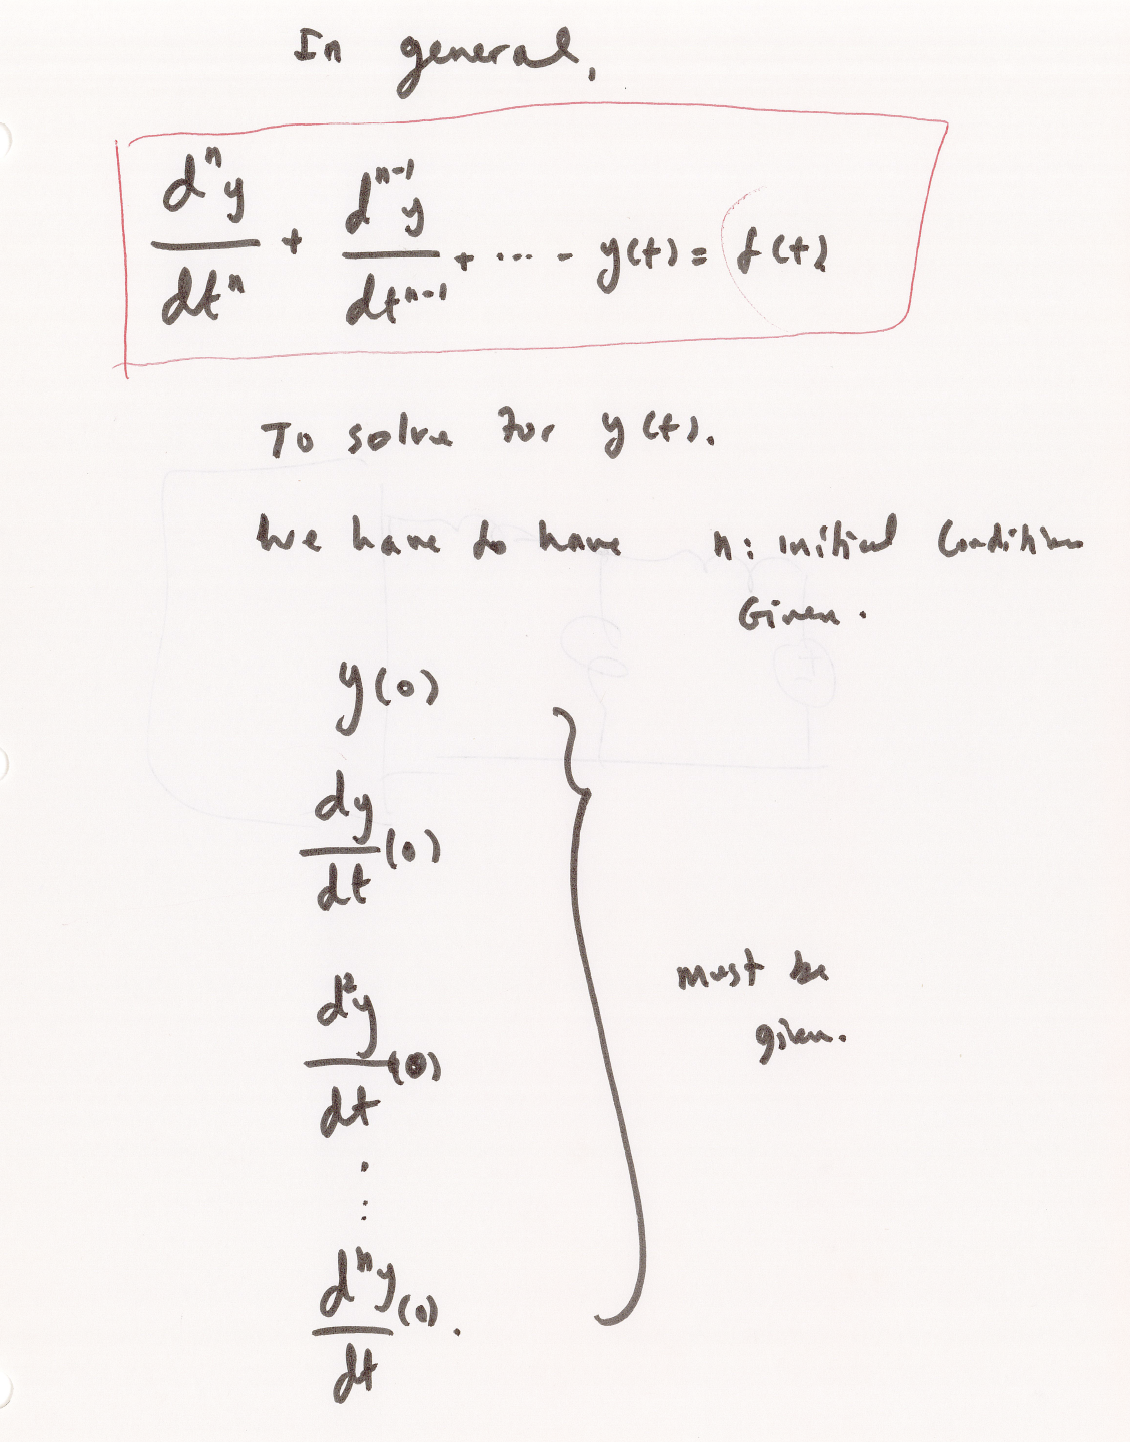 In general,
dⁿy/dtⁿ + dⁿ⁻¹y/dtⁿ⁻¹ + ... - y(t) = f(t)
To solve for y(t).
We have to have n: initial Conditions
Given.
y(0)
dy/dt (0)
d²y/dt (0)
must be
given.
⋮
dⁿy/dt (0).